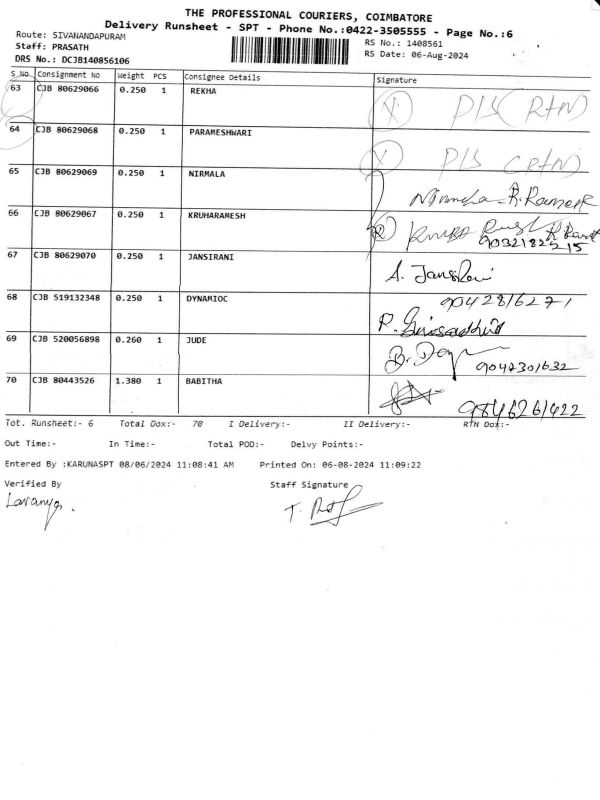 THE PROFESSIONAL COURIERS, COIMBATORE
Delivery Runsheet - SPT - Phone No.:0422-3505555 - Page No.:6
Route: SIVANANDAPURAM
RS No.: 1408561
Staff: PRASATH
RS Date: 06-Aug-2024
DRS No.: DCJB140856106
S_No Consignment No Weight PCS Consignee Details Signature
63 CJB 80629066 0.250 1 REKHA (RTN)
64 CJB 80629068 0.250 1 PARAMESHWARI (RTN)
65 CJB 80629069 0.250 1 NIRMALA
66 CJB 80629067 0.250 1 KRUHARAMESH
67 CJB 80629070 0.250 1 JANSIRANI
68 CJB 519132348 0.250 1 DYNAMIOC 9042816271
69 CJB 520056898 0.260 1 JUDE 9047301632
70 CJB 80443526 1.380 1 BABITHA 9846261422
Tot. Runsheet:- 6 Total Dox:- 70 I Delivery:- II Delivery:- RTN Dox:-
Out Time:- In Time:- Total POD:- Delvy Points:-
Entered By :KARUNASPT 08/06/2024 11:08:41 AM Printed On: 06-08-2024 11:09:22
Verified By Staff Signature
Lavanya.